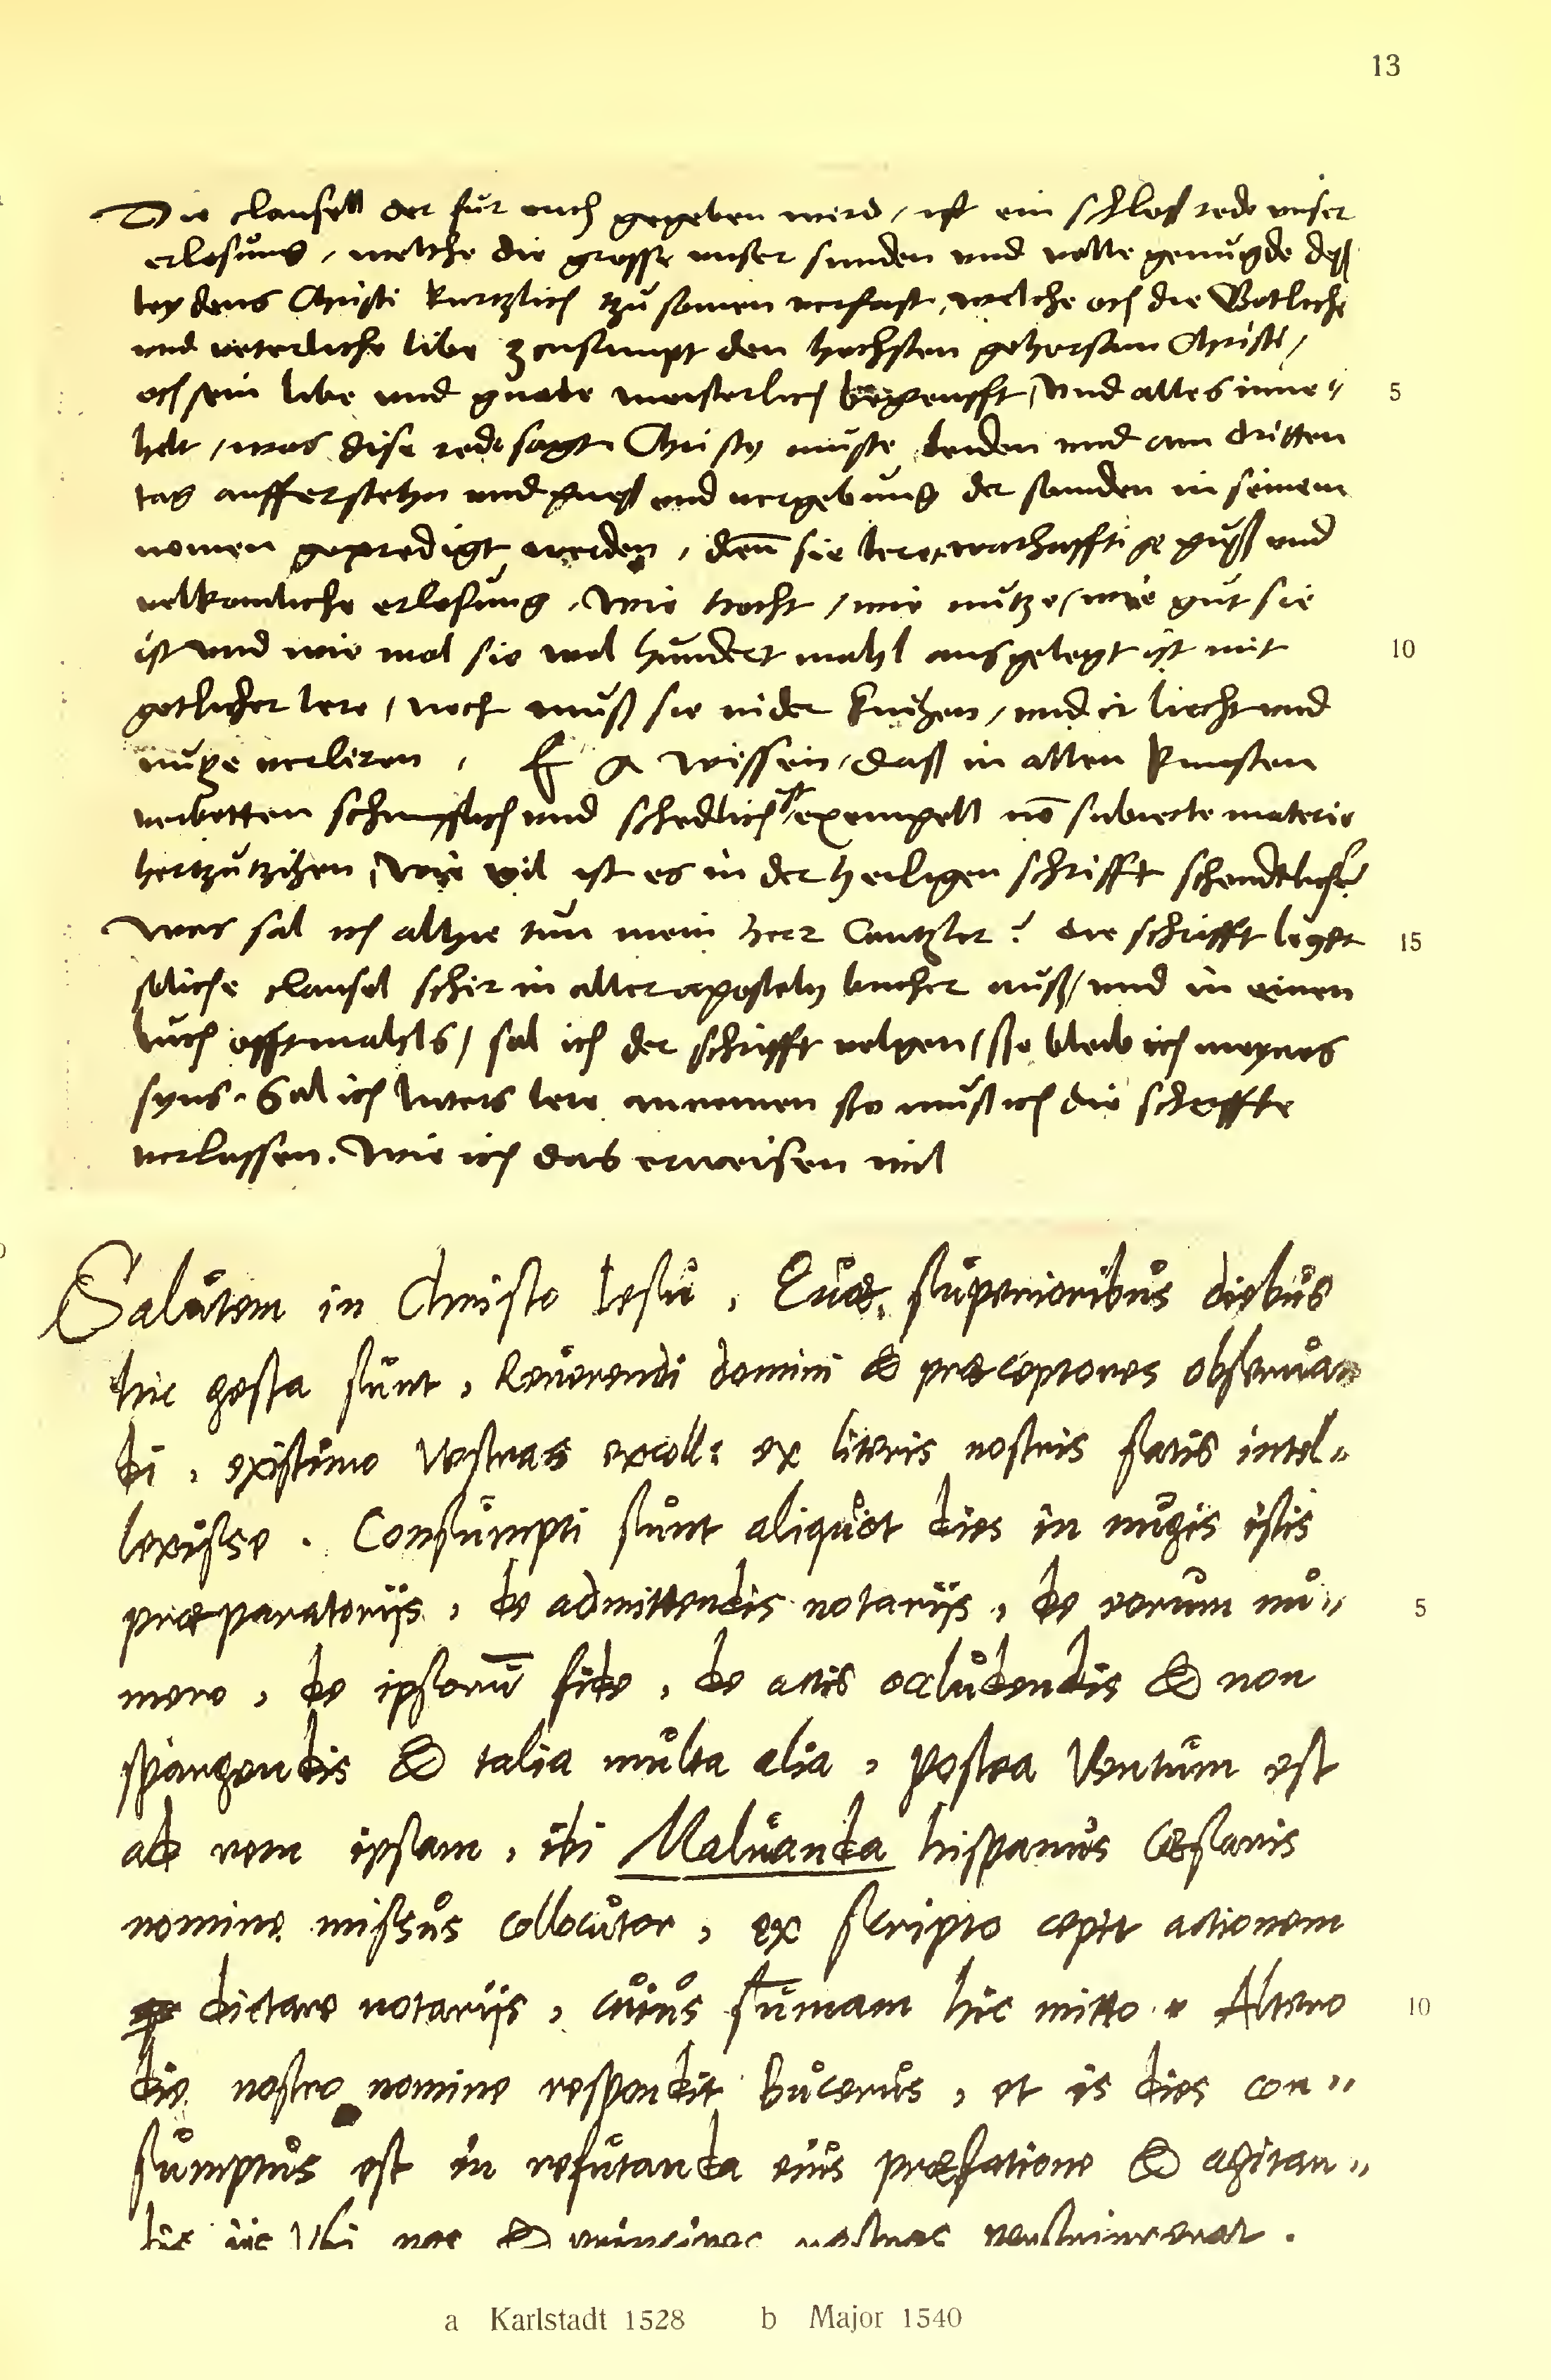 13
Die clausell der fur euch gegeben wird / ist ein schlos rede unser
erlosung / welche die grosse unser sunden und volle genugde deß
leydens Christi kurtzlich tzu samen verfast, welche och die Gotliche
und veterliche libe zcusampt den hochsten gehorsam Christi /
och sein libe und gnade meisterlich begreufft, und alles inne„
5
helt / was dise rede sagt Christus muste leiden und am dritten
tag aufferstehn und pueß und vergebung der sunden in seinem
nomen gepredigt werden, dieu sie leret warhafftige puß und
volkomliche erlosung. Wie hocht / wie nutze / wie gut sie
ist und wie wol sie wol hundert mahl ausgelegt ist mit
10
gotlicher lere / noch muß sie nider knihen / und ir liecht und
nutze verliren, E g wissen, daß in allen kunsten
verbotten schimpflich und schedlich ist, exempell no subiecte materie
hertzutzihen, wie vil ist es in der heiligen schrifft schendtlicher
Was sal ich alhie tun mein herr Cantzler? die schrifft leget
15
soliche clausel schir in aller aposteln bucher auß, und in einen
buch offtmahls / sal ich der schrifft volgen / sso bleib ich meynes
syns. Sal ich luters lere annemen sso muß ich die schriffte
verlassen. Wie ich das erweisen wil
Salutem in Christo Iesu, Quæ superioribus diebus
hic gesta sunt, Reuerendi domini & præceptores obseruan
di, existimo Vestras excell: ex literis nostris satis intel„
lexisse. Consumpti sunt aliquot dies in nugis istis
præparatorijs, de admittendis notarijs, de eorum nu„
5
mero, de ipsorū fide, de actis occludendis & non
spargendis & talia multa alia, postea Ventum est
ad rem ipsam, ibi Maluanda hispanus Cæsaris
nomine missus collocutor, ex scripto cepit actionem
dictare notarijs, cuius sum̄am hic mitto. Altero
10
die nostro nomine respondit Bucerus, et is dies con„
sumptus est in refutanda eius præfatione & agitan„
dis iis Ubi nos & principes nostros perstrinxerat.
a Karlstadt 1528
b Major 1540